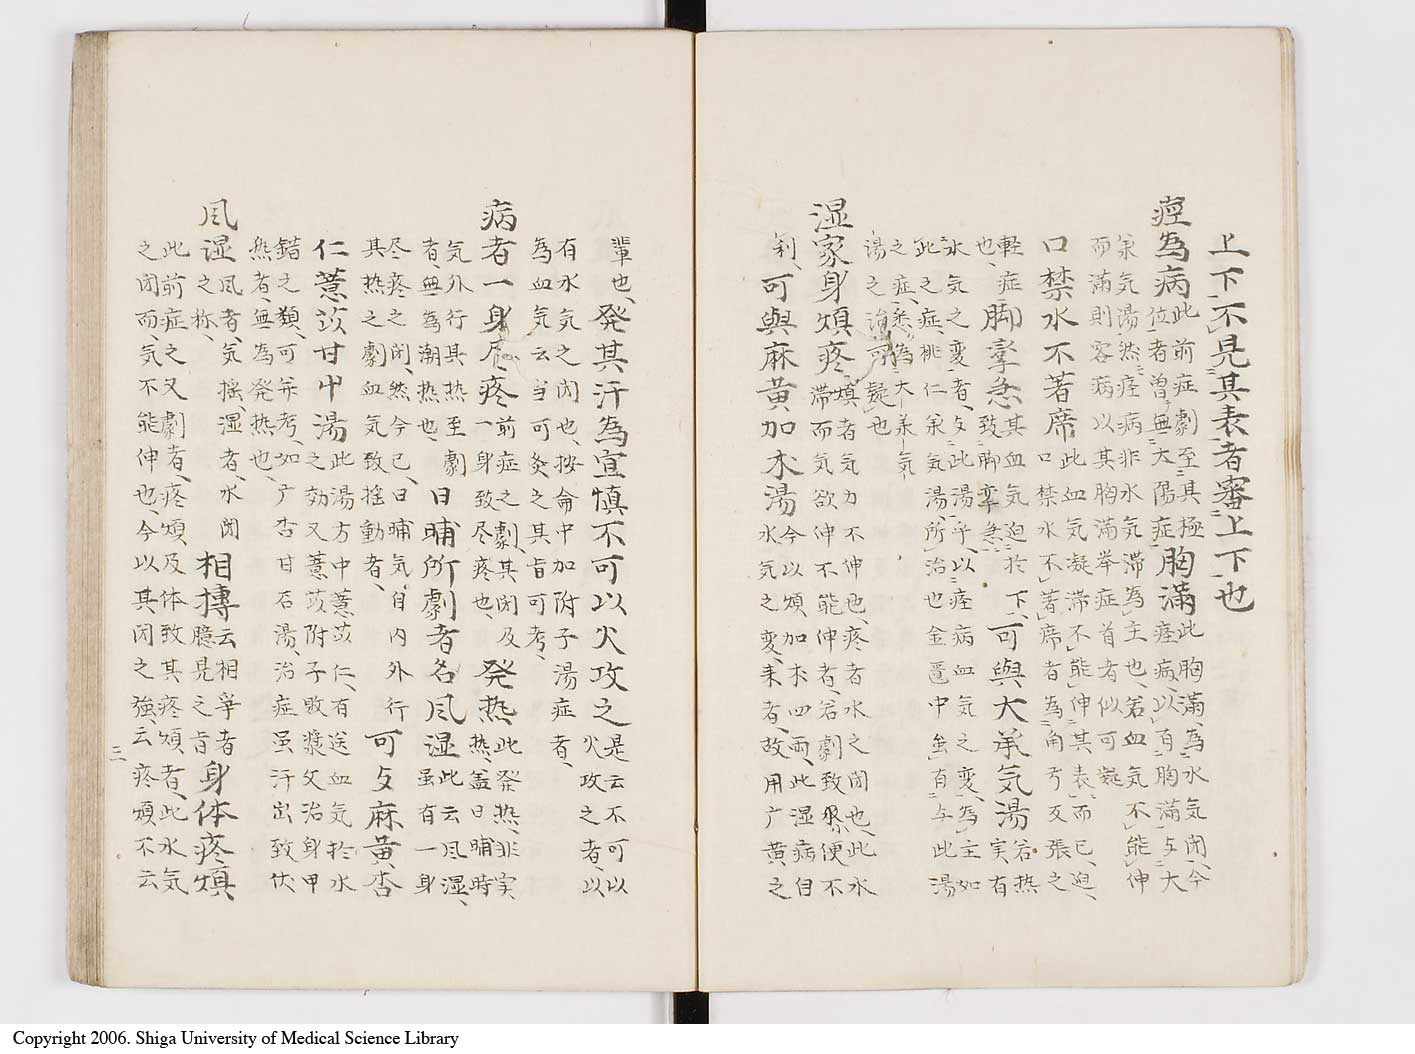 上下不見其表者審上下也
痙為病此前症劇至其極
位者曽無大陽症胸満此胸満為水気閉今
痙病以有胸満与大
承気湯然痙病非水気滞為主也若血気不能伸
而満則客病以其胸満挙症首者似可疑
口禁水不著席此血気凝滞不能伸其表而已迫
口禁水不著席者為角弓反張之
軽症脚攣急其血気迫於下
也致脚攣急可与大承気湯若熱
実有
水気之変者与此湯乎以痙病血気之変為主如
此之症桃仁承気湯所治也金匱中無有与此湯
之症悉為大承気
湯之治可疑也
湿家身煩疼煩者気力不伸也疼者水之閉也此水
滞而気欲伸不能伸者若劇致不
利可與麻黄加朮湯今以煩加朮四両此湿病自
水気之変来者故用广黄之
輩也発其汗為宜慎不可以火攻之是云不可以
火攻之者以
有水気之閉也按侖中加附子湯症者
為血気云当可灸之其旨可考
病者一身尽疼前症之劇其閉及
一身致尽疼也発熱此発熱非実
熱蓋日晡時
気外行其熱至劇
者無為潮熱也日晡所劇者名風湿此云風湿
虽有一身
尽疼之閉然今已日晡気自内外行
其熱之劇血気致揺動者可与麻黄杏
仁薏苡甘中湯此湯方中薏苡仁有送血気於水
之効又薏苡附子敗漿文治身甲
錯之類可并考如广杏甘石湯治症虽汗出致伏
熱者無為発熱也
風湿風者気揺湿者水閉
之称相搏云相争者
臆見之旨身体疼煩
此前症之又劇者疼煩及体致其疼煩者此水気
之閉而気不能伸也今以其閉之強云疼煩不云
三
Copyright 2006. Shiga University of Medical Science Library